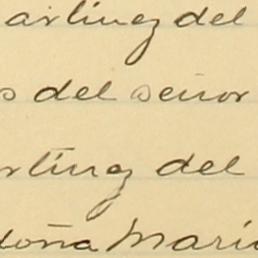 artinez del
s del señor
rtinez del
doña Marí